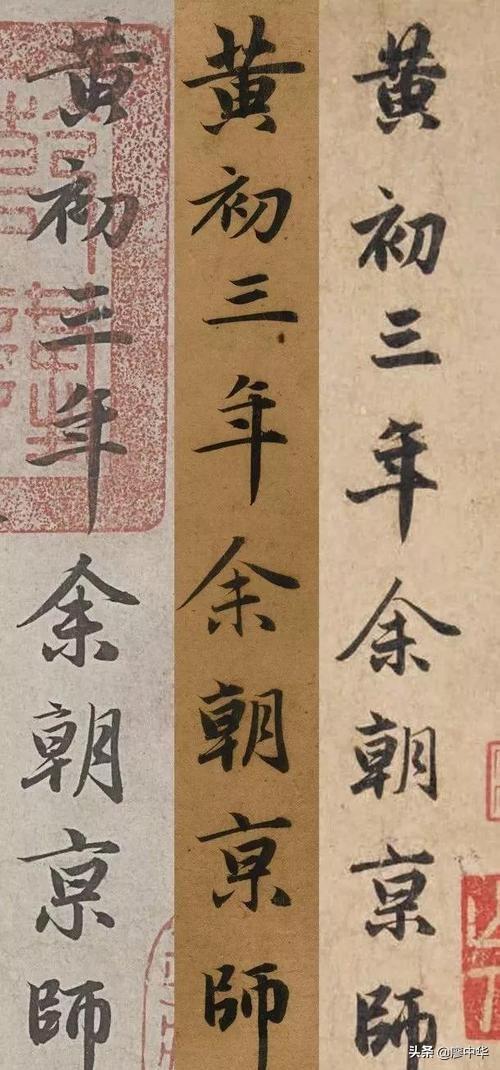 黄初三年余朝亰師
黄初三年余朝亰師
黄初三年余朝亰師
头条 @廖中华